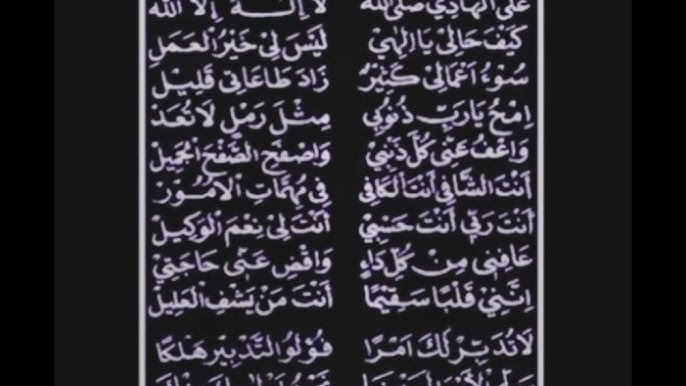 عَلَى الْهَادِي صَلَّى الله لَا إِلٰهَ إِلَّا الله
كَيْفَ حَالِيْ يَا اِلٰهِيْ لَيْسَ لِيْ خَيْرُ الْعَمَلِ
سُوْءُ اَعْمَالِيْ كَثِيْرٌ زَادَ طَاعَاتِيْ قَلِيْل
اِمْحُ يَارَبِّ ذُنُوْبِي مِثْلَ رَمْلٍ لَا تُعَدْ
وَاعْفُ عَنِّي كُلَّ ذَنْبِيْ وَاصْفَحِ الصَّفْحَ الْجَمِيْل
أَنْتَ الشَّافِيْ أَنْتَ الْكَافِي فِي مُهِمَّاتِ الْاُمُوْرْ
أَنْتَ رَبِّي أَنْتَ حَسْبِيْ أَنْتَ لِيْ نِعْمَ الْوَكِيْل
عَافِنِي مِنْ كُلِّ دَاءٍ وَاقْضِ عَنِّي حَاجَتِيْ
اِنَّنِيْ قَلْبًا سَقِيْمًا أَنْتَ مَنْ يَشْفِ الْعَلِيْل
لَا تُدَبِّرْ لَكَ اَمْرًا فَوُلُو التَّدْبِيْرِ هَلْكَا